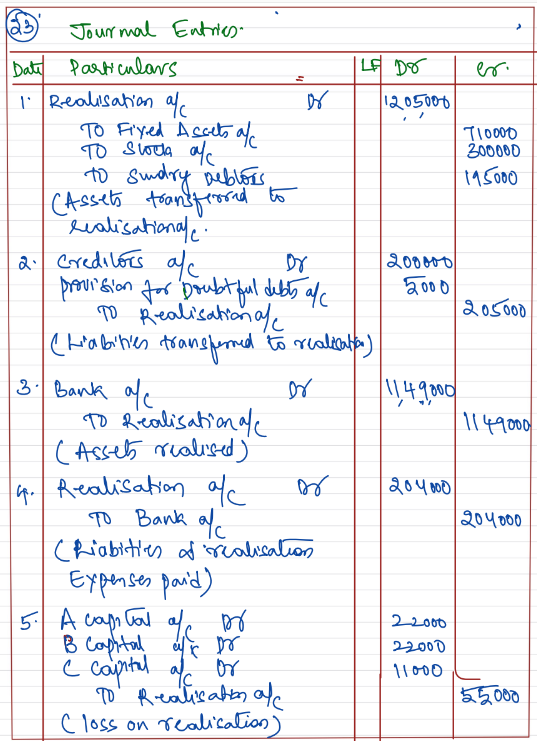 23 Journal Entries.
Date Particulars LF Dr cr.
1. Realisation a/c Dr 1205000
To Fixed Assets a/c 710000
To Stock a/c 300000
To Sundry Debtors 195000
(Assets transferred to
realisation a/c.
2. Creditors a/c Dr 200000
provision for Doubtful debts a/c 5000
To Realisation a/c 205000
(Liabities transferred to realisation)
3. Bank a/c Dr 1149000
To Realisation a/c 1149000
(Assets realised)
4. Realisation a/c Dr 204000
To Bank a/c 204000
(Liabities & realisation
Expenses paid)
5. A capital a/c Dr 22000
B capital a/c Dr 22000
C capital a/c Dr 11000
To Realisation a/c 55000
(loss on realisation)